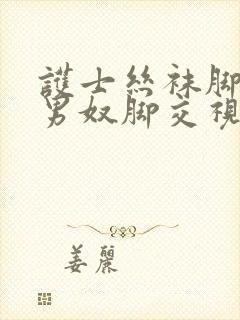 護士絲袜脚
男奴脚交視
姜麗